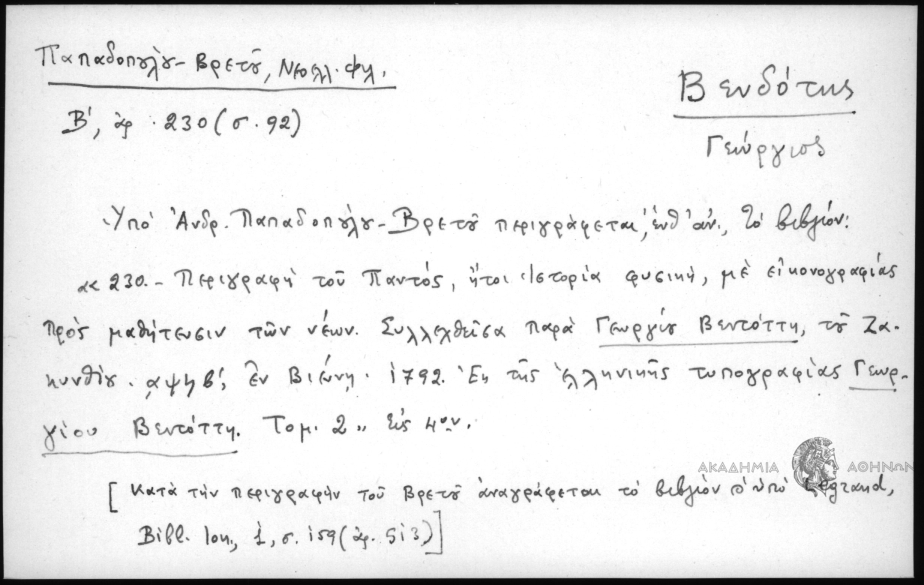 Παπαδοπούλου-Βρετοῦ, Νεοελλ. Φιλ.
Β', ἀρ. 230 (σ. 92)
Βενδότης
Γεώργιος
Ὑπὸ Ἀνδρ. Παπαδοπούλου-Βρετοῦ περιγράφεται, ἔνθ' ἀν., τὸ βιβλίον:
«230.- Περιγραφὴ τοῦ Παντός, ἤτοι Ἱστορία φυσική, μὲ εἰκονογραφίας
πρὸς μαθήτευσιν τῶν νέων. Συλλεχθεῖσα παρὰ Γεωργίου Βεντόττη, τοῦ Ζα-
κυνθίου. αψηβ', ἐν Βιέννῃ. 1792. Ἐκ τῆς ἑλληνικῆς τυπογραφίας Γεωρ-
γίου Βεντόττη. Τομ. 2,, εἰς 4ον.
[Κατὰ τὴν περιγραφὴν τοῦ Βρετοῦ ἀναγράφεται τὸ βιβλίον ὑπὸ Legrand,
Bibl. Ion., 1, σ. 159 (ἀρ. 513)]
ΑΚΑΔΗΜΙΑ ΑΘΗΝΩΝ